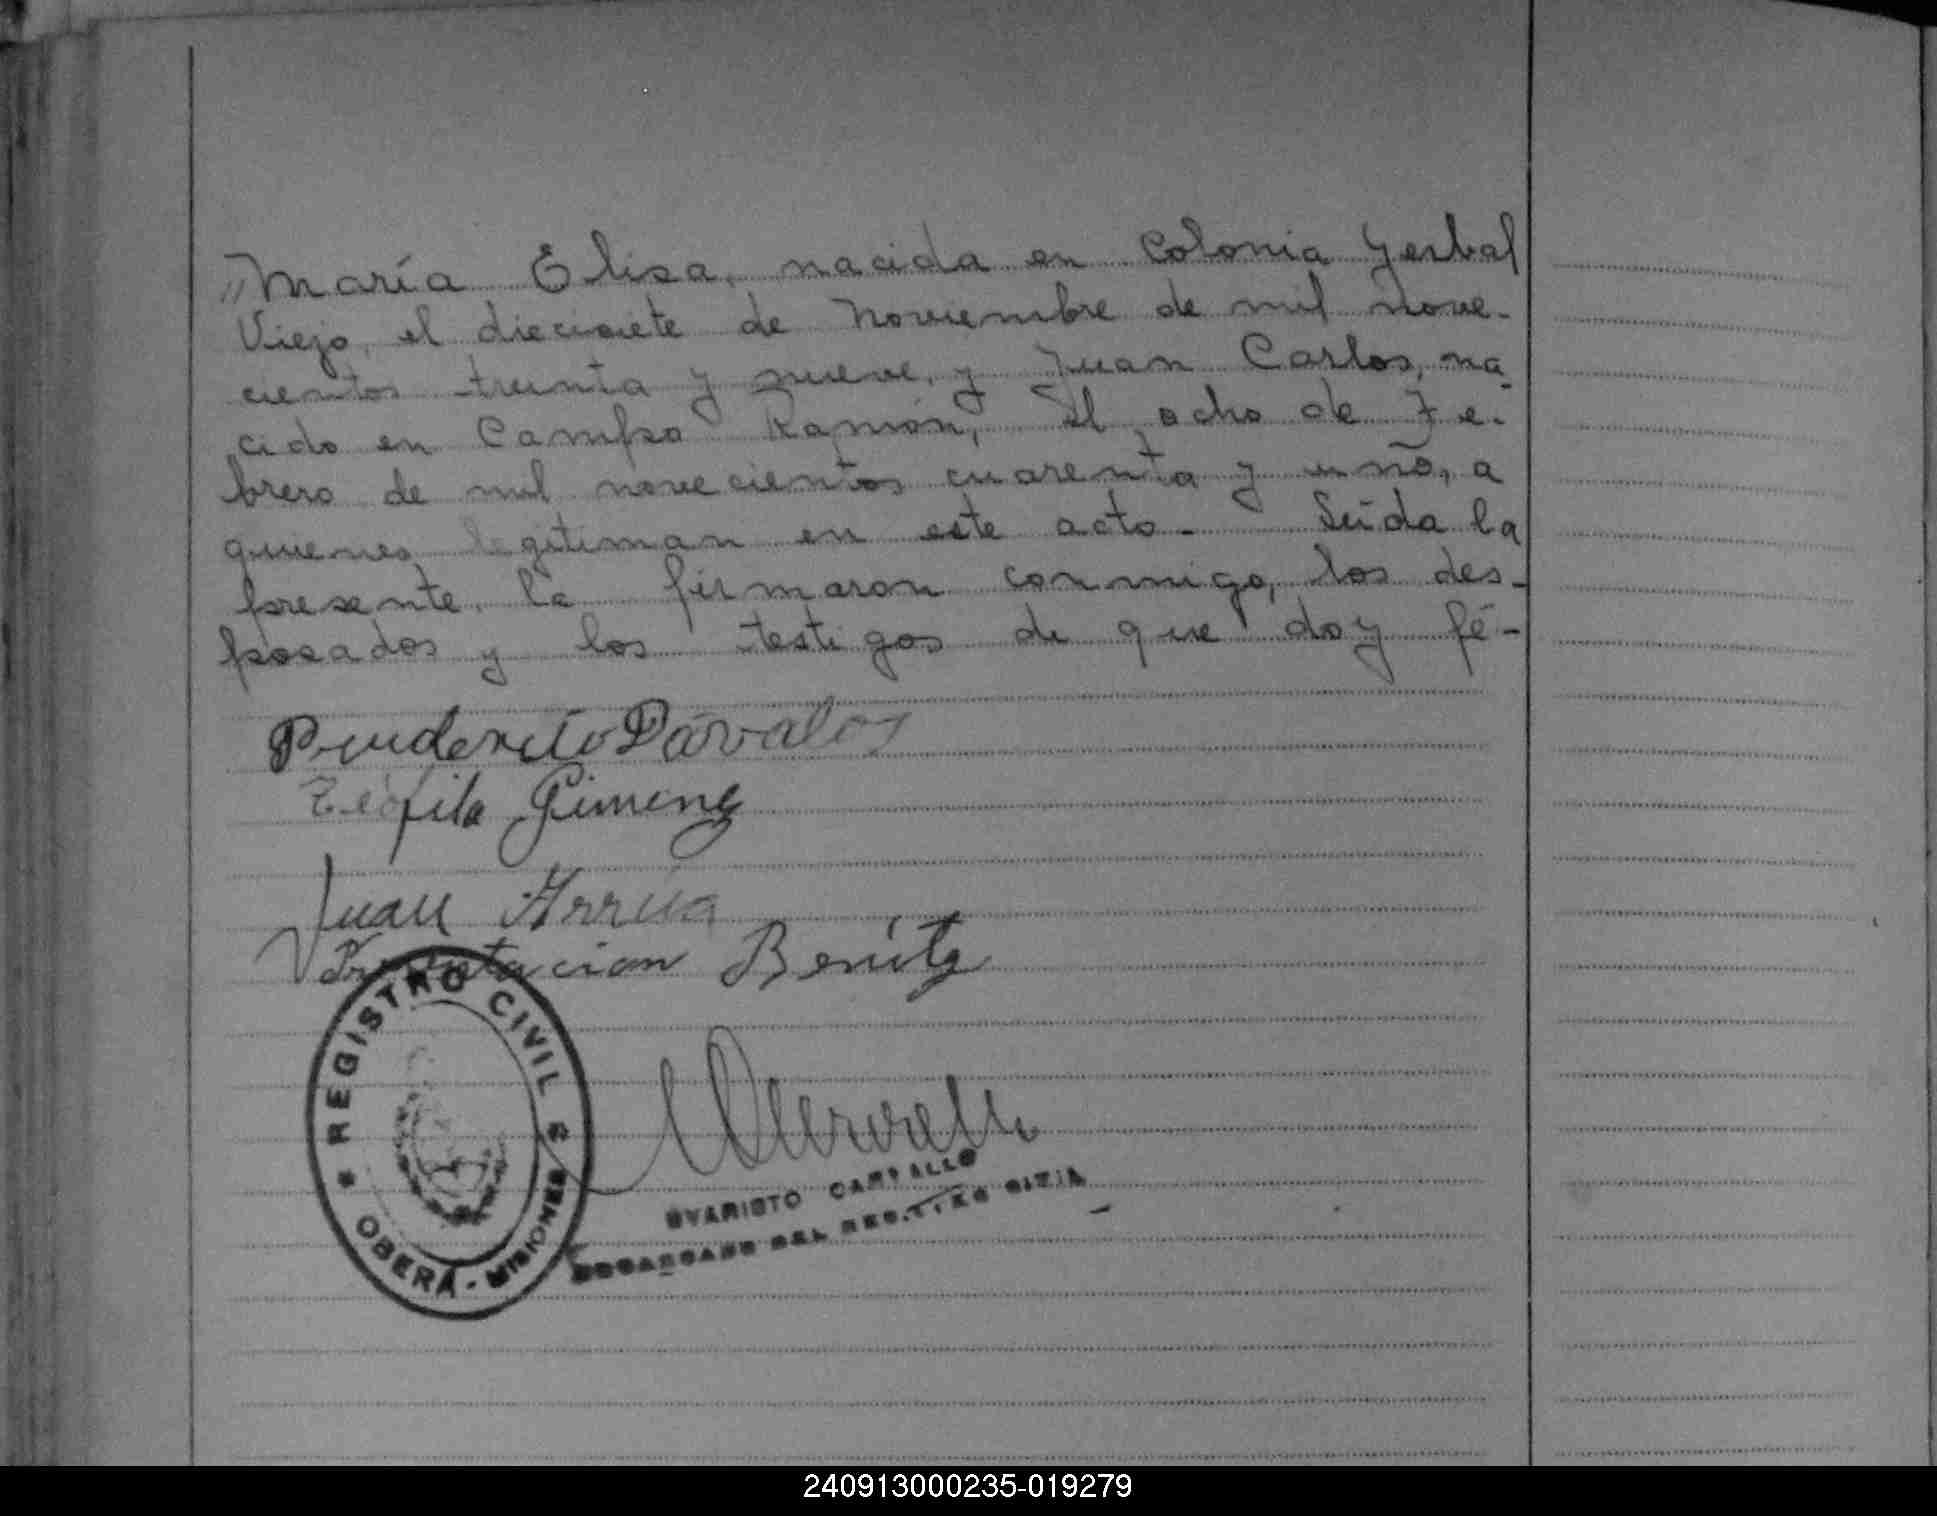 "María Elisa, nacida en Colonia Yerbal
Viejo, el diecisiete de Noviembre de mil nove-
cientos treinta y nueve, y Juan Carlos, na-
cido en Campo Ramón, el ocho de Fe-
brero de mil novecientos cuarenta y uno, a
quienes legitiman en este acto- Leída la
presente, la firmaron conmigo, los des-
posados y los testigos de que doy fé-
Prudencio Dávalos
Teófila Gimenez
Juan Arrúa
Presentacion Benitez
REGISTRO CIVIL
OBERÁ - MISIONES
EVARISTO CARVALLO
ENCARGADO DEL REG.
240913000235-019279